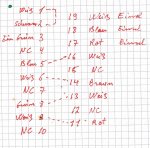 Weiß 1
Schwarz 2
Grün 3
NC 4
Blau 5
Weiß 6
NC 7
Grün 8
Weiß 9
NC 10
19 Weiß Einzel
18 Blau Einzel
17 Rot Einzel
16 Weiß
15 NC
14 Braun
13 Weiß
12 NC
11 Rot